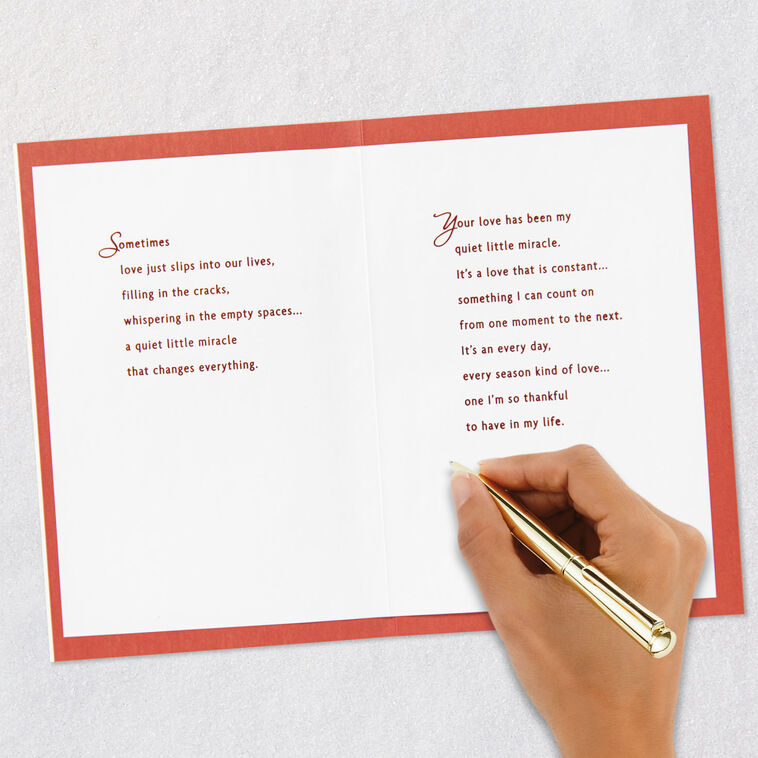 Sometimes
love just slips into our lives,
filling in the cracks,
whispering in the empty spaces...
a quiet little miracle
that changes everything.
Your love has been my
quiet little miracle.
It's a love that is constant...
something I can count on
from one moment to the next.
It's an every day,
every season kind of love...
one I'm so thankful
to have in my life.